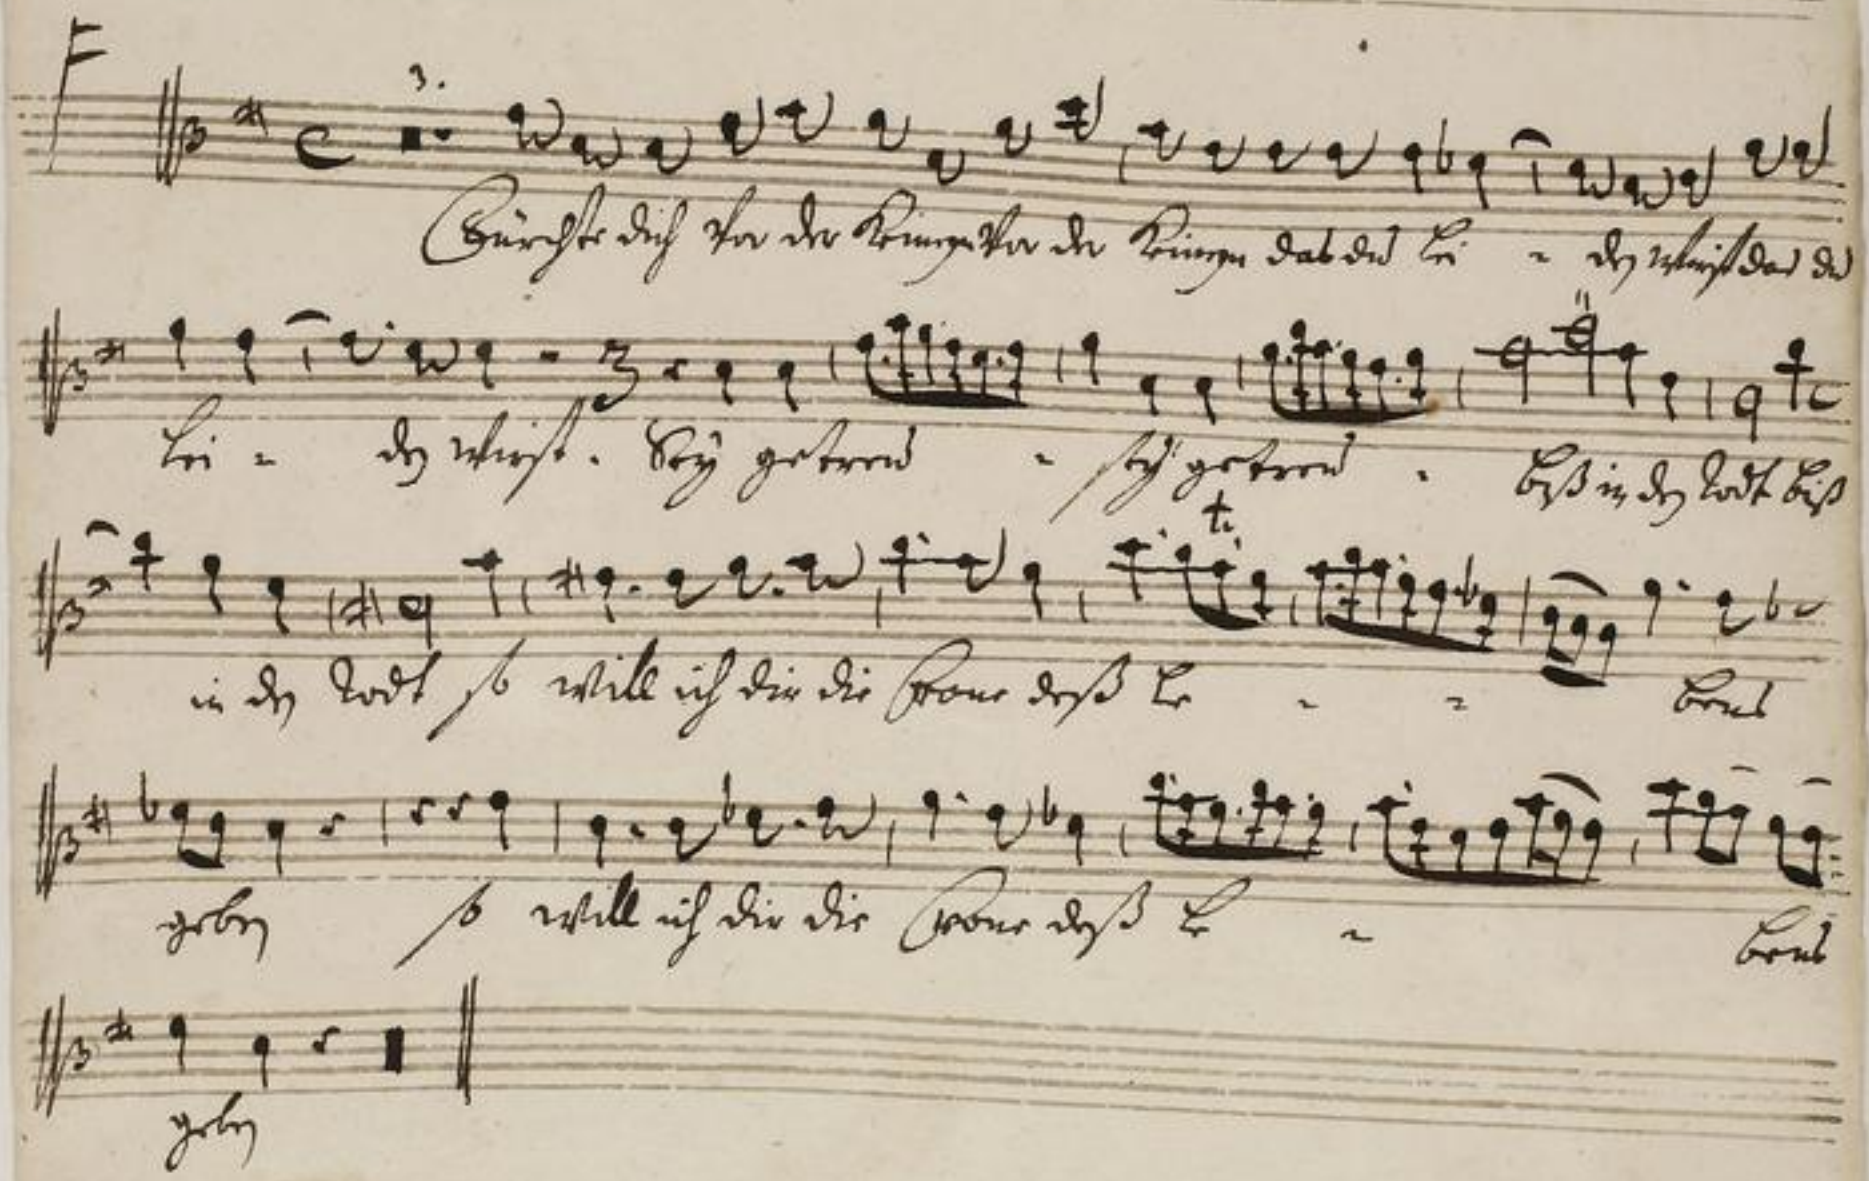 F
3.
Fürchte dich Vor der Keinem Vor der Keinem das du lei - den wirst das du
lei - den wirst. Sey getreu - sey getreu - biß in den Todt biß
t.
in den Todt so will ich dir die Crone deß Le - - bens
geben so will ich dir die Crone deß Le - bens
geben